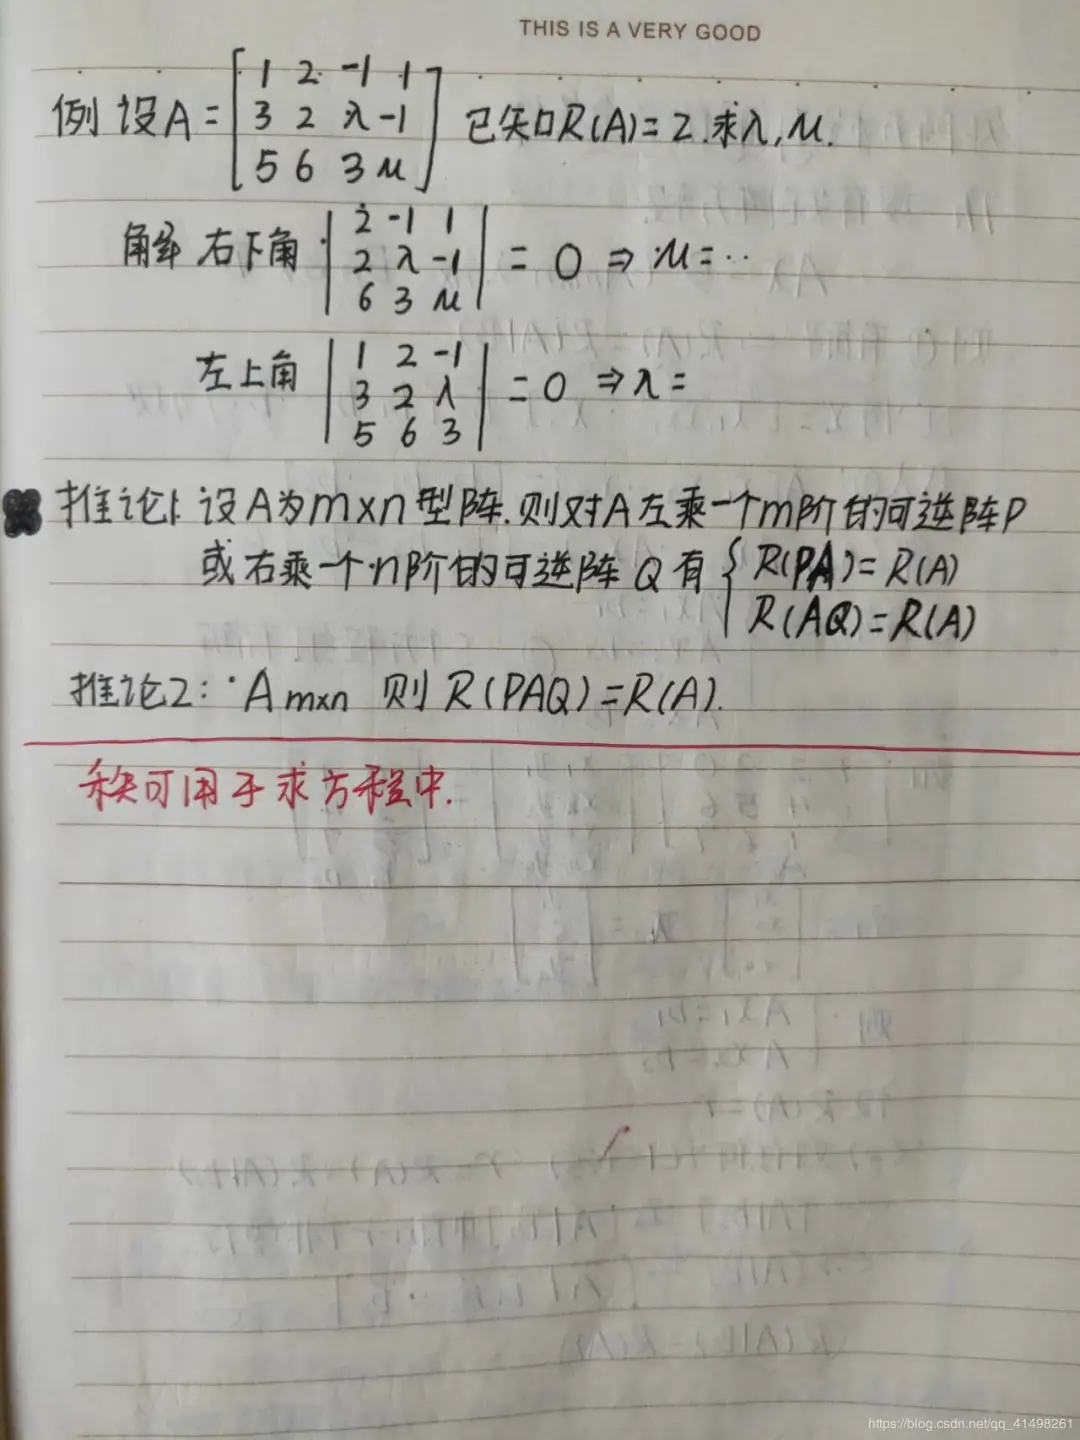 THIS IS A VERY GOOD
例 设A = [1 2 -1 1
3 2 λ -1
5 6 3 μ] 已知R(A)=2.求λ,μ.
解 右下角 |2 -1 1
2 λ -1
6 3 μ| = 0 ⇒ μ=…
左上角 |1 2 -1
3 2 λ
5 6 3| = 0 ⇒ λ=
推论1: 设A为m×n型阵.则对A左乘一个m阶的可逆阵P
或右乘一个n阶的可逆阵Q有 { R(PA)=R(A)
R(AQ)=R(A)
推论2: A m×n 则 R(PAQ)=R(A).
秩可用于求方程中.
https://blog.csdn.net/qq_41498261